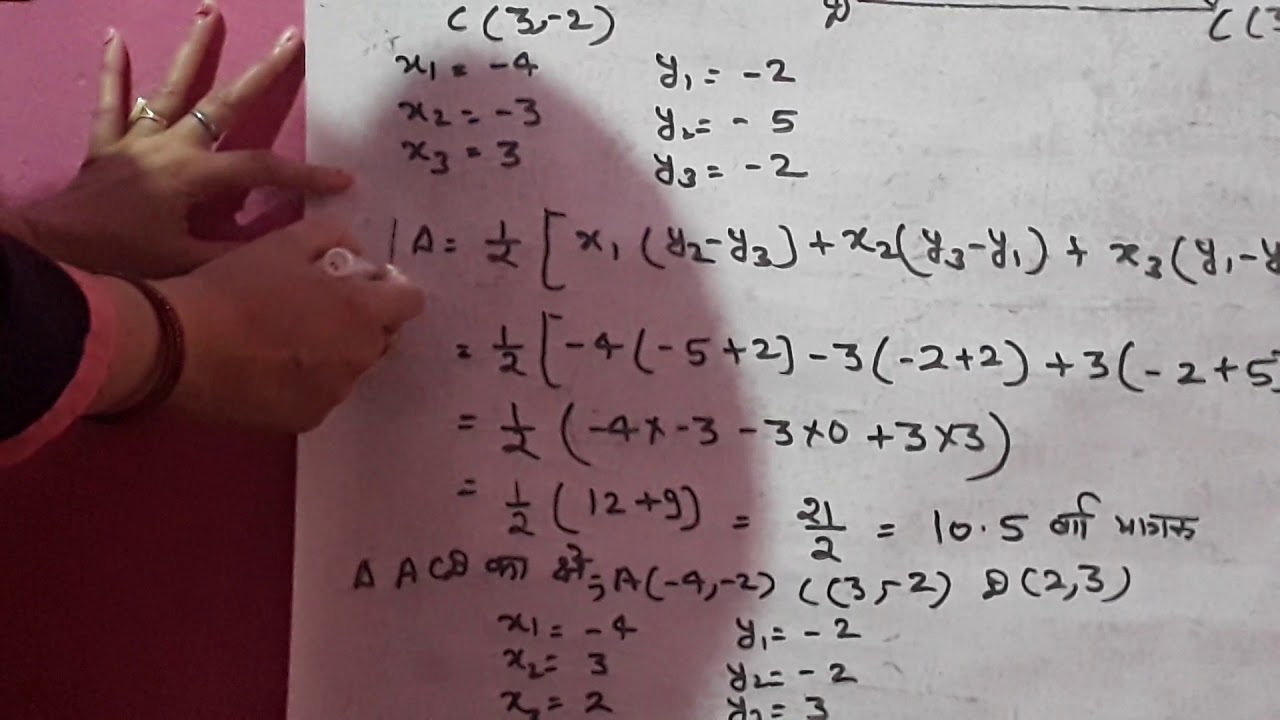 C(3,-2) D C(3
x₁ = -4 y₁ = -2
x₂ = -3 y₂ = - 5
x₃ = 3 y₃ = -2
A = 1/2 [ x₁ (y₂-y₃) + x₂(y₃-y₁) + x₃(y₁-y
= 1/2 [-4(-5+2) - 3(-2+2) + 3(-2+5)
= 1/2 (-4×-3 -3×0 +3×3)
= 1/2 (12+9) = 21/2 = 10.5 वर्ग मात्रक
Δ ACD का क्षे॰, A(-4,-2) C(3,-2) D(2,3)
x₁ = -4 y₁ = -2
x₂ = 3 y₂ = -2
x₃ = 2 y₃ = 3